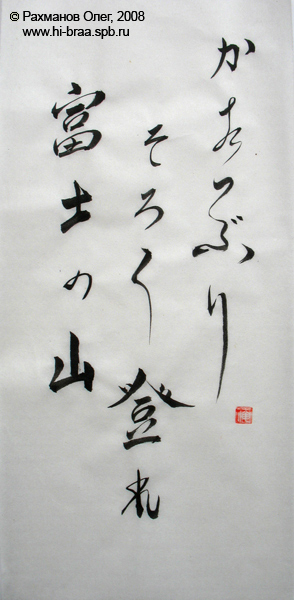 © Рахманов Олег, 2008
www.hi-braa.spb.ru
かたつぶり
そろ〱登れ
富士の山